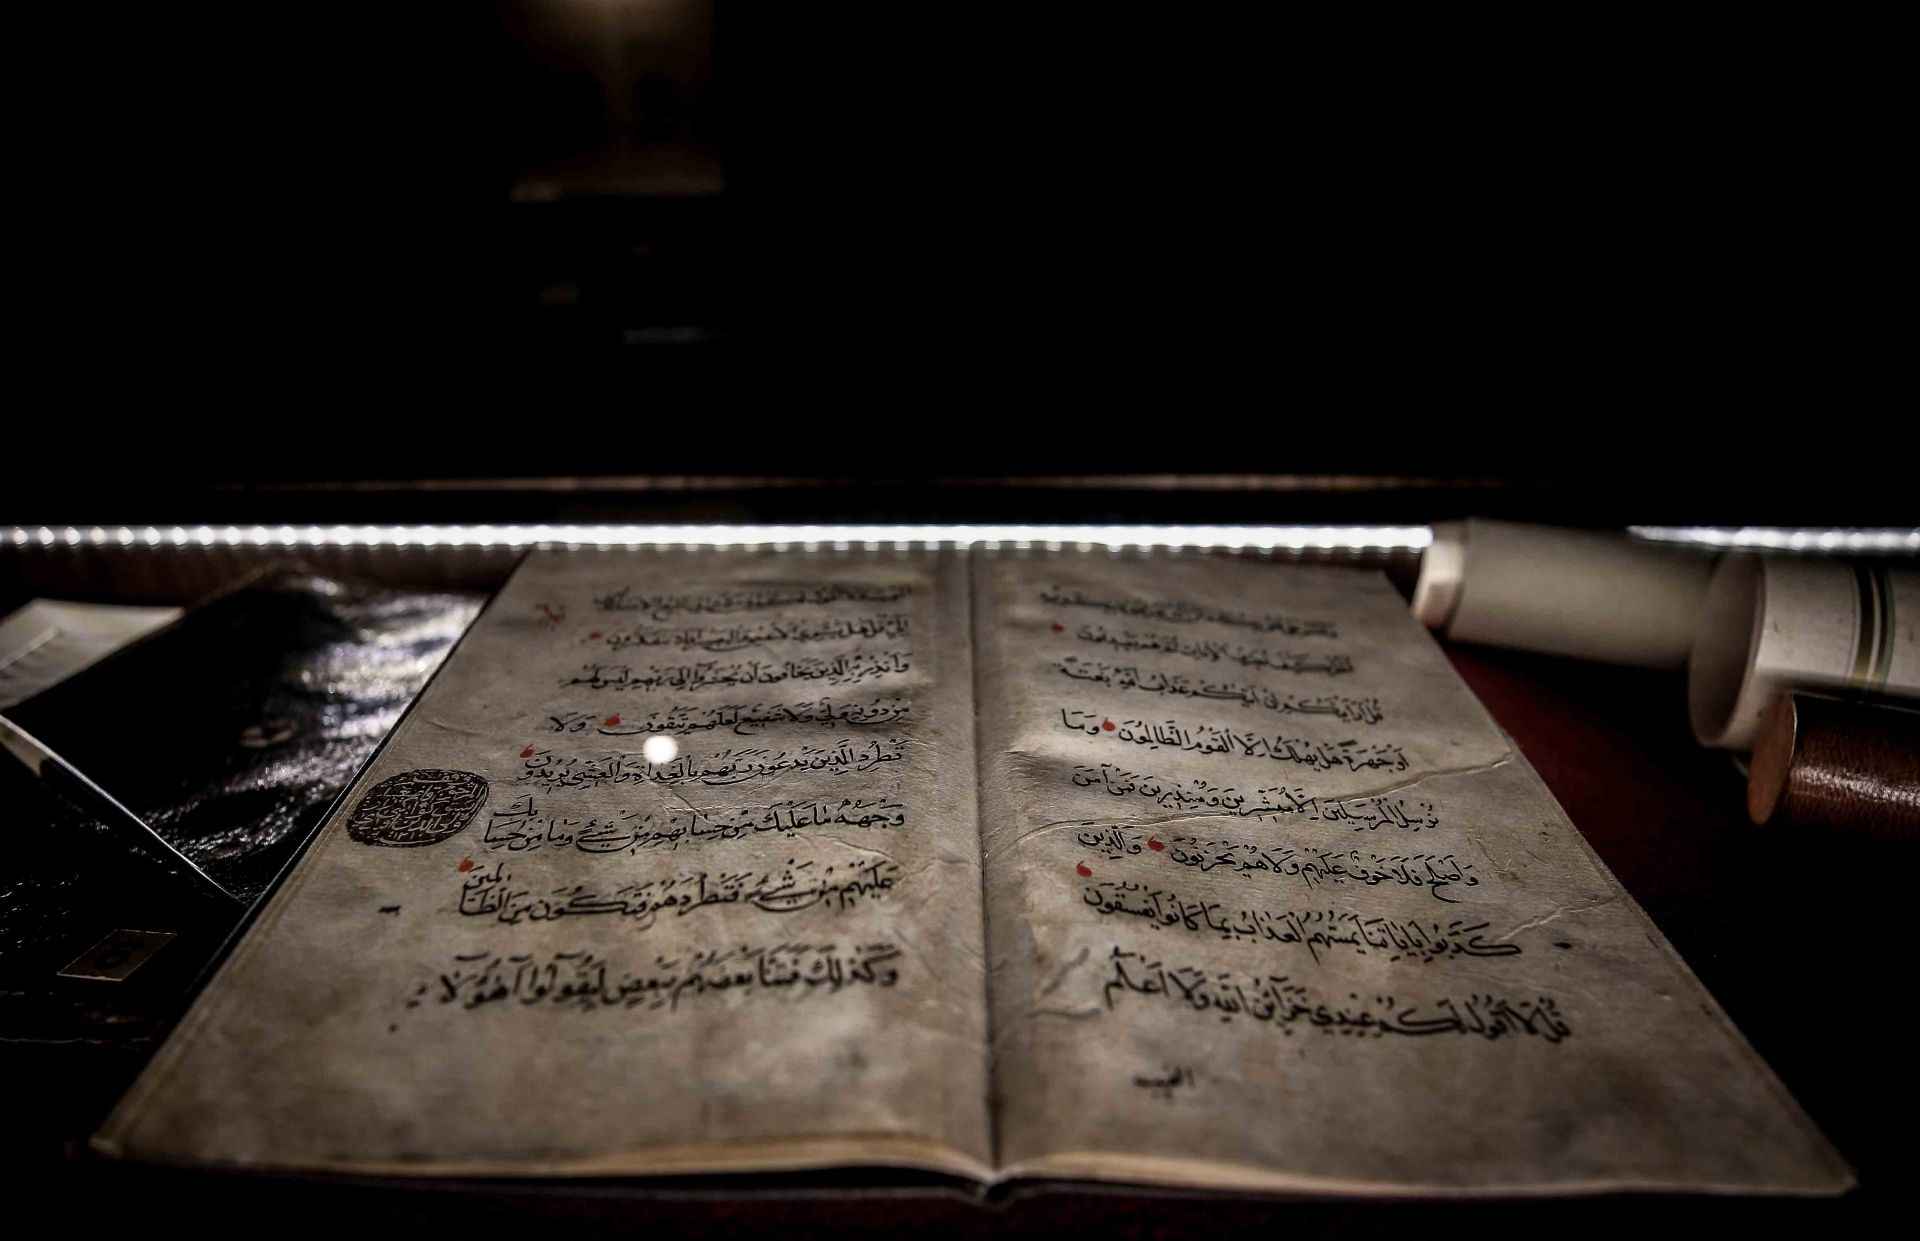 انظر كيف نصرف الآيات ثم هم يصدفون
قل أرأيتكم إن أتاكم عذاب الله بغتة
أَوْ جَهْرَةً هَلْ يُهْلَكُ إِلَّا الْقَوْمُ الظَّالِمُونَ وَمَا
نُرْسِلُ الْمُرْسَلِينَ إِلَّا مُبَشِّرِينَ وَمُنْذِرِينَ فَمَنْ آمَنَ
وَأَصْلَحَ فَلَا خَوْفٌ عَلَيْهِمْ وَلَا هُمْ يَحْزَنُونَ وَالَّذِينَ
كَذَّبُوا بِآيَاتِنَا يَمَسُّهُمُ الْعَذَابُ بِمَا كَانُوا يَفْسُقُونَ
قُلْ لَا أَقُولُ لَكُمْ عِنْدِي خَزَآئِنُ اللَّهِ وَلَا أَعْلَمُ
الغيب
إلي قل هل يستوي الأعمى والبصير أفلا تتفكرون
وَأَنْذِرْ بِهِ الَّذِينَ يَخَافُونَ أَنْ يُحْشَرُوا إِلَى رَبِّهِمْ لَيْسَ لَهُمْ
مِنْ دُونِهِ وَلِيٌّ وَلَا شَفِيعٌ لَعَلَّهُمْ يَتَّقُونَ وَلَا
تَطْرُدِ الَّذِينَ يَدْعُونَ رَبَّهُمْ بِالْغَدَاةِ وَالْعَشِيِّ يُرِيدُونَ
وَجْهَهُ مَا عَلَيْكَ مِنْ حِسَابِهِمْ مِنْ شَيْءٍ وَمَا مِنْ حِسَابِكَ
عَلَيْهِمْ مِنْ شَيْءٍ فَتَطْرُدَهُمْ فَتَكُونَ مِنَ الظَّالِمِينَ
وَكَذَلِكَ فَتَنَّا بَعْضَهُمْ بِبَعْضٍ لِيَقُولُوا أَهَؤُلَاءِ